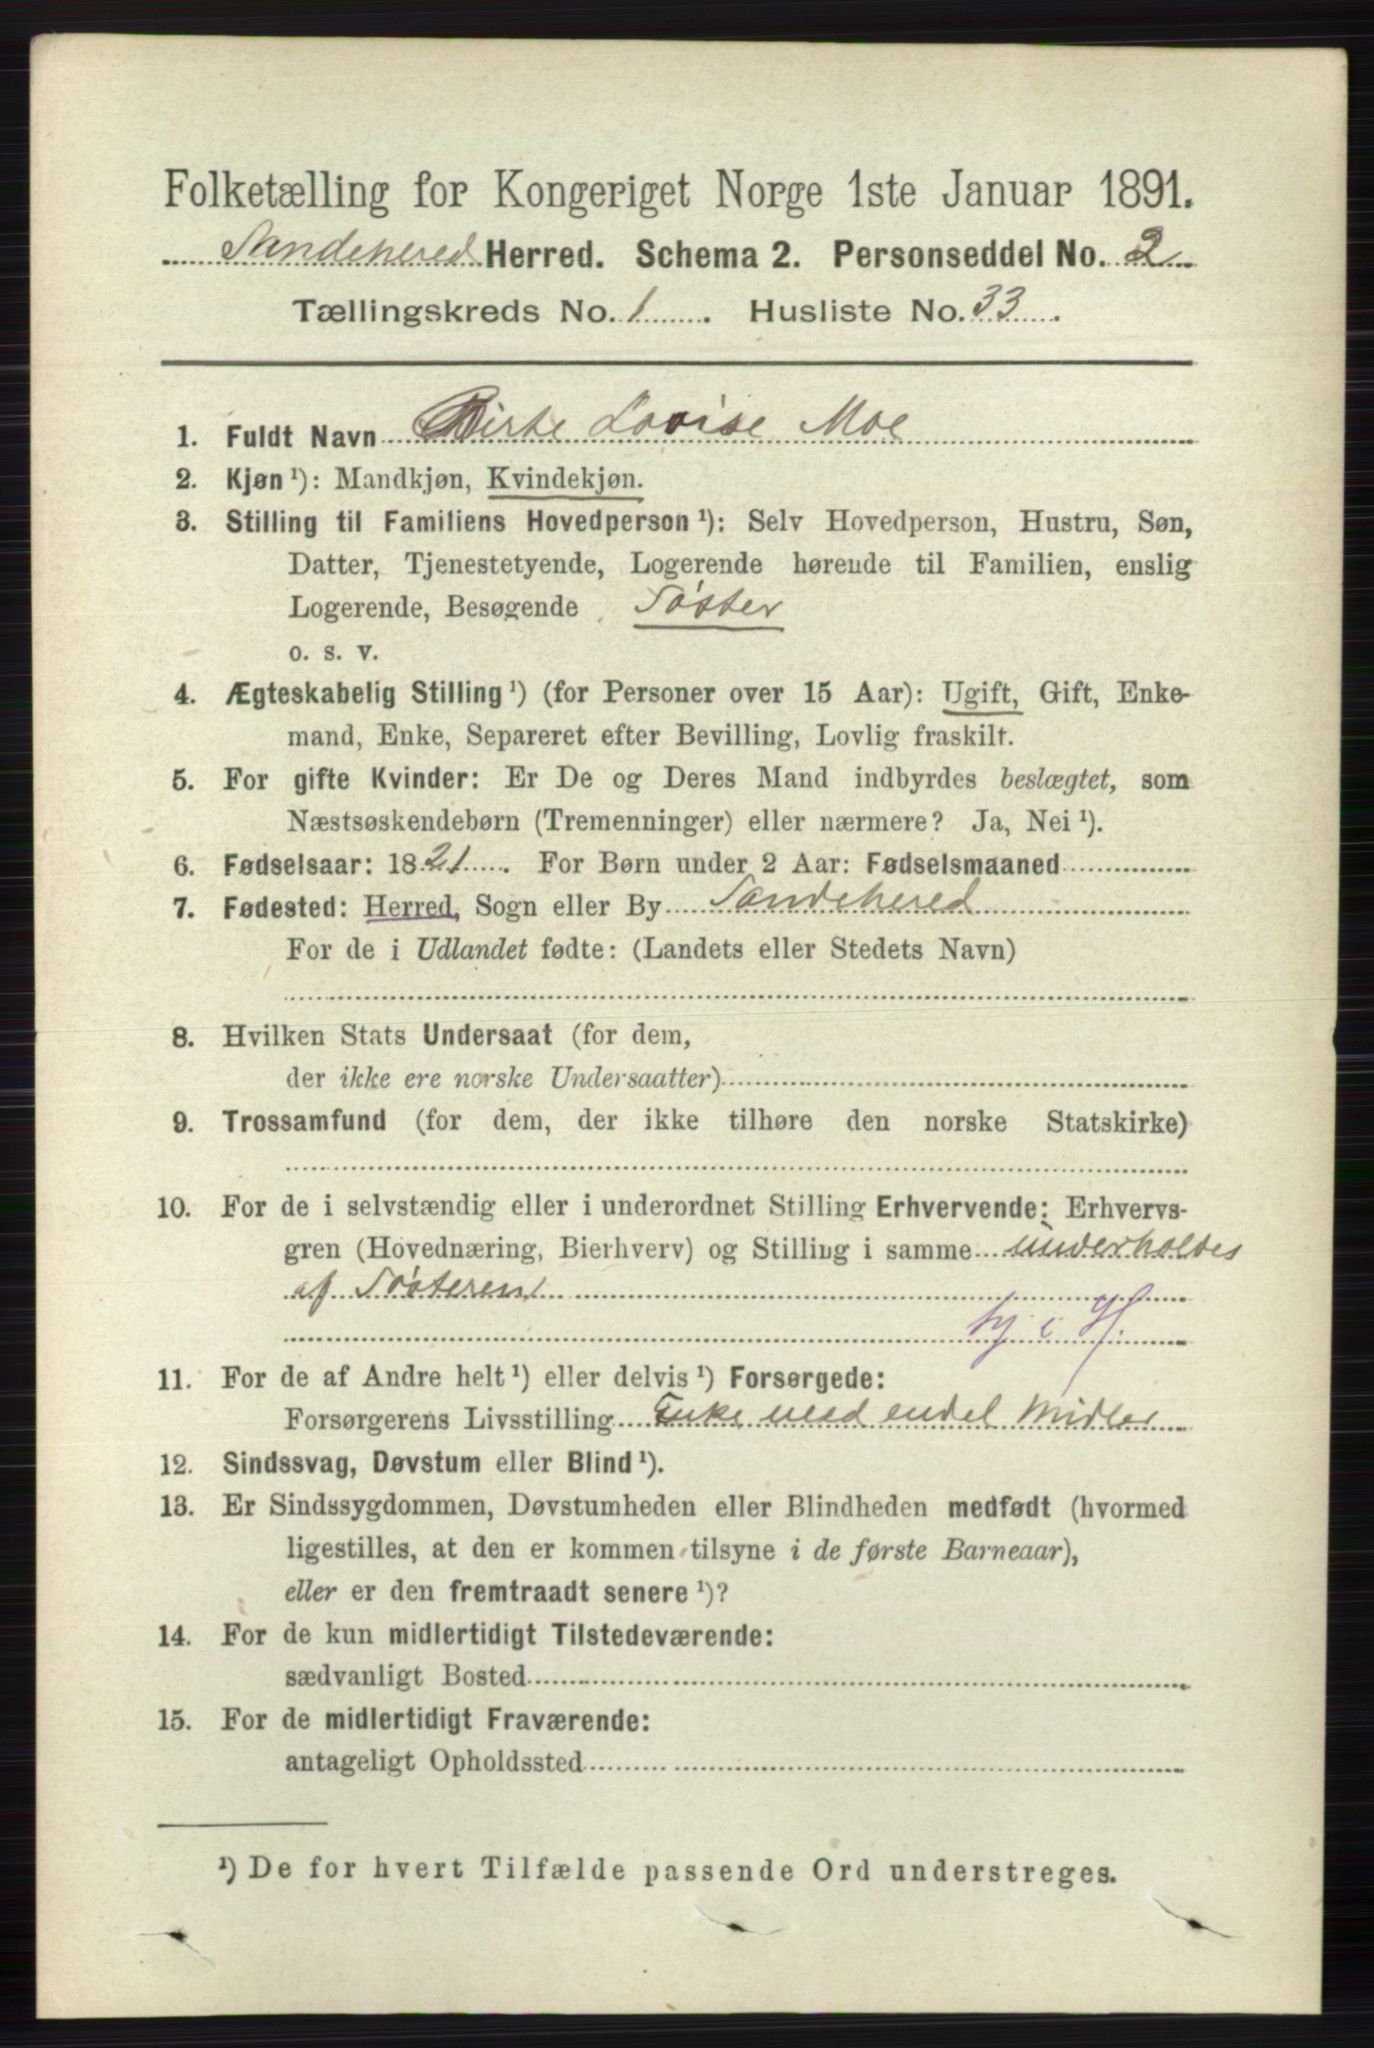 Folketælling for Kongeriget Norge 1ste Januar 1891.
Sandehered Herred. Schema 2. Personseddel No. 2
Tællingskreds No. 1. Husliste No. 33.
1. Fuldt Navn Birte Lovise Moe
2. Kjøn ¹): Mandkjøn, Kvindekjøn.
3. Stilling til Familiens Hovedperson ¹): Selv Hovedperson, Hustru, Søn,
Datter, Tjenestetyende, Logerende hørende til Familien, enslig
Logerende, Besøgende Søster
o. s. v.
4. Ægteskabelig Stilling ¹) (for Personer over 15 Aar): Ugift, Gift, Enke-
mand, Enke, Separeret efter Bevilling, Lovlig fraskilt.
5. For gifte Kvinder: Er De og Deres Mand indbyrdes beslægtet, som
Næstsøskendebørn (Tremenninger) eller nærmere? Ja, Nei ¹).
6. Fødselsaar: 1821. For Børn under 2 Aar: Fødselsmaaned
7. Fødested: Herred, Sogn eller By Sandehered
For de i Udlandet fødte: (Landets eller Stedets Navn)
8. Hvilken Stats Undersaat (for dem,
der ikke ere norske Undersaatter)
9. Trossamfund (for dem, der ikke tilhøre den norske Statskirke)
10. For de i selvstændig eller i underordnet Stilling Erhvervende: Erhvervs-
gren (Hovednæring, Bierhverv) og Stilling i samme underholdes
af Søsteren
i H.
11. For de af Andre helt ¹) eller delvis ¹) Forsørgede:
Forsørgerens Livsstilling Enke med endel Midler
12. Sindssvag, Døvstum eller Blind ¹).
13. Er Sindssygdommen, Døvstumheden eller Blindheden medfødt (hvormed
ligestilles, at den er kommen tilsyne i de første Barneaar),
eller er den fremtraadt senere ¹)?
14. For de kun midlertidigt Tilstedeværende:
sædvanligt Bosted
15. For de midlertidigt Fraværende:
antageligt Opholdssted
¹) De for hvert Tilfælde passende Ord understreges.